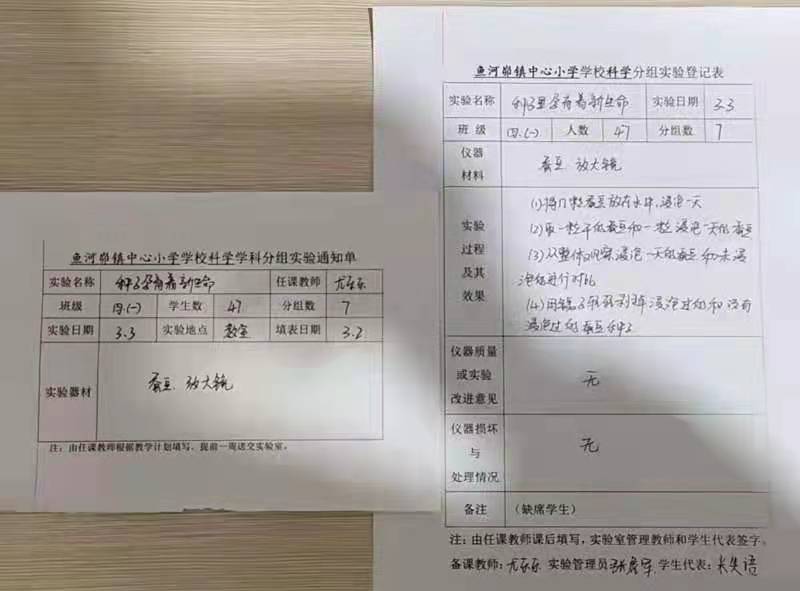 鱼河峁镇中心小学学校科学学科分组实验通知单
实验名称 种子孕育着新生命 任课教师
班级 四.(一) 学生数 47 分组数 7
实验日期 3.3 实验地点 教室 填表日期 3.2
实验器材 蚕豆 放大镜
注：由任课教师根据教学计划填写，提前一周送交实验室。
鱼河峁镇中心小学学校科学分组实验登记表
实验名称 种子里孕育着新生命 实验日期 3.3
班 级 四.(一) 人数 47 分组数 7
仪器
材料
蚕豆 放大镜
实验
过程
及其
效果
(1)将几粒蚕豆放在水中,浸泡一天
(2)取一粒干的蚕豆和一粒浸泡一天的蚕豆
(3)从整体观察浸泡一天的蚕豆和未浸
泡的进行对比
(4)用镊子轻轻剥开浸泡过的和没有
浸泡过的蚕豆种子
仪器质量
或实验
改进意见
无
仪器损坏
与
处理情况
无
备注 （缺席学生）
注：由任课教师课后填写，实验室管理教师和学生代表签字。
备课教师: 实验管理员 学生代表: